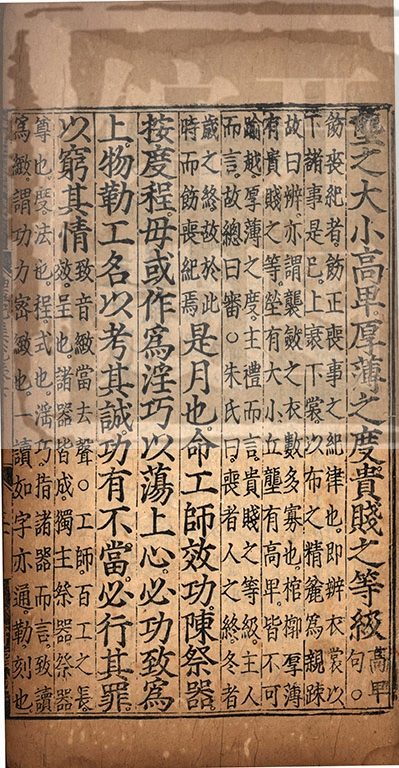 壟之大小高卑厚薄之度貴賤之等級高卑
句○
飭喪紀者飭正喪事之紀律也即辨衣裳以
下諸事是巳上衰下裳以布之精麄為親疎
故曰辨亦謂襲斂之衣數多寡也棺槨厚薄
有貴賤之等塋有大小丘壟有高卑皆不可
踰越厚薄之度主禮而言貴賤之等級主人
而言故總曰審○朱氏曰喪者人之終冬者
歲之終故於此
時而飭喪紀焉
是月也命工師效功陳祭器
按度程毋或作爲淫巧以蕩上心必功致爲
上物勒工名以考其誠功有不當必行其罪
以窮其情致音緻當去聲○工師百工之長
效呈也諸器皆成獨主祭器祭器
尊也度法也程式也淫巧指諸器而言致讀
爲緻謂功力密緻也一讀如字亦通勒刻也